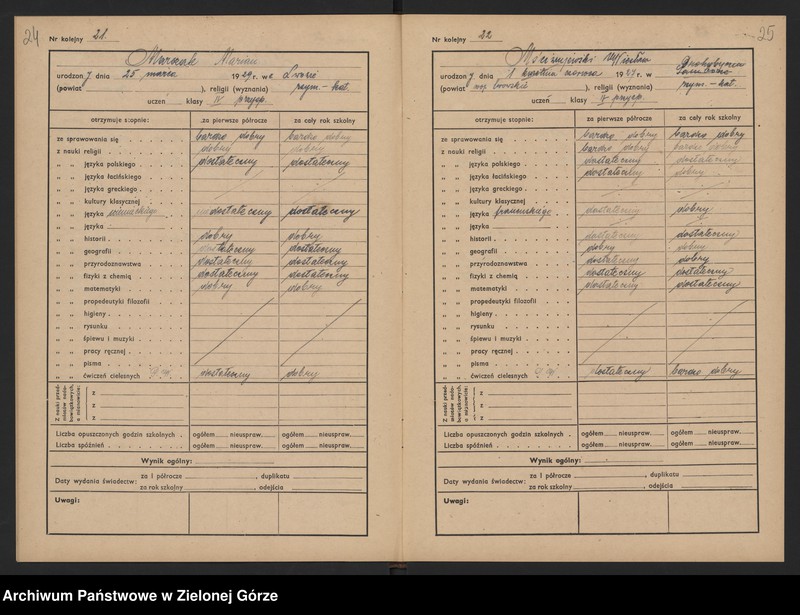 24
Nr kolejny 21.
Marszak Marian
urodzony dnia 25 marca 1929 r. we Lwowie
(powiat ), religii (wyznania) rzym.-kat.
uczeń klasy IV przysp.
otrzymuje stopnie: za pierwsze półrocze za cały rok szkolny
ze sprawowania się bardzo dobry bardzo dobry
z nauki religii dobry dobry
„ „ języka polskiego dostateczny dostateczny
„ „ języka łacińskiego
„ „ języka greckiego
„ „ kultury klasycznej
„ „ języka niemieckiego dostateczny dostateczny
„ „ języka
„ „ historii dobry dobry
„ „ geografii dostateczny dostateczny
„ „ przyrodoznawstwa dostateczny dostateczny
„ „ fizyki z chemią dostateczny dostateczny
„ „ matematyki dobry dobry
„ „ propedeutyki filozofii
„ „ higieny
„ „ rysunku
„ „ śpiewu i muzyki
„ „ pracy ręcznej
„ „ pisma
„ „ ćwiczeń cielesnych dostateczny dobry
Z nauki przedmiotów nadobowiązkowych, a mianowicie:
z
z
z
Liczba opuszczonych godzin szkolnych ogółem nieuspraw. ogółem nieuspraw.
Liczba spóźnień ogółem nieuspraw. ogółem nieuspraw.
Wynik ogólny:
Daty wydania świadectw: za I półrocze , duplikatu
za rok szkolny , odejścia
Uwagi:
25
Nr kolejny 22
Wiesław
urodzony dnia 1 1927 r. w
(powiat woj. lwowskie ), religii (wyznania) rzym.-kat.
uczeń klasy IV przysp.
otrzymuje stopnie: za pierwsze półrocze za cały rok szkolny
ze sprawowania się bardzo dobry bardzo dobry
z nauki religii bardzo dobry bardzo dobry
„ „ języka polskiego dostateczny dostateczny
„ „ języka łacińskiego dostateczny dobry
„ „ języka greckiego
„ „ kultury klasycznej
„ „ języka francuskiego dostateczny dobry
„ „ języka
„ „ historii dostateczny dostateczny
„ „ geografii dobry dobry
„ „ przyrodoznawstwa dostateczny dobry
„ „ fizyki z chemią dostateczny dostateczny
„ „ matematyki dostateczny dostateczny
„ „ propedeutyki filozofii
„ „ higieny
„ „ rysunku
„ „ śpiewu i muzyki
„ „ pracy ręcznej
„ „ pisma
„ „ ćwiczeń cielesnych dostateczny bardzo dobry
Z nauki przedmiotów nadobowiązkowych, a mianowicie:
z
z
z
Liczba opuszczonych godzin szkolnych ogółem nieuspraw. ogółem nieuspraw.
Liczba spóźnień ogółem nieuspraw. ogółem nieuspraw.
Wynik ogólny:
Daty wydania świadectw: za I półrocze , duplikatu
za rok szkolny , odejścia
Uwagi:
Archiwum Państwowe w Zielonej Górze